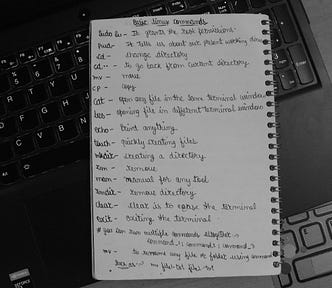 Basic linux commands
sudo su - It grants the root permissions.
pwd - It tells us about our present working
cd - change directory
cd.. - to go back from current directory
mv - move
cp - copy
cat - open any file in the same terminal window
less - opening file in different terminal window
echo - print anything
touch - quickly creating files
mkdir - creating a directory.
rm - remove
man - manual for any tool
rmdir - remove directory
clear - clear is to erase the terminal
exit - exiting the terminal
* you can run multiple commands altogether
command 1; command 2; command 3
mv - to rename any file or folder using command
mv file.txt file.txt